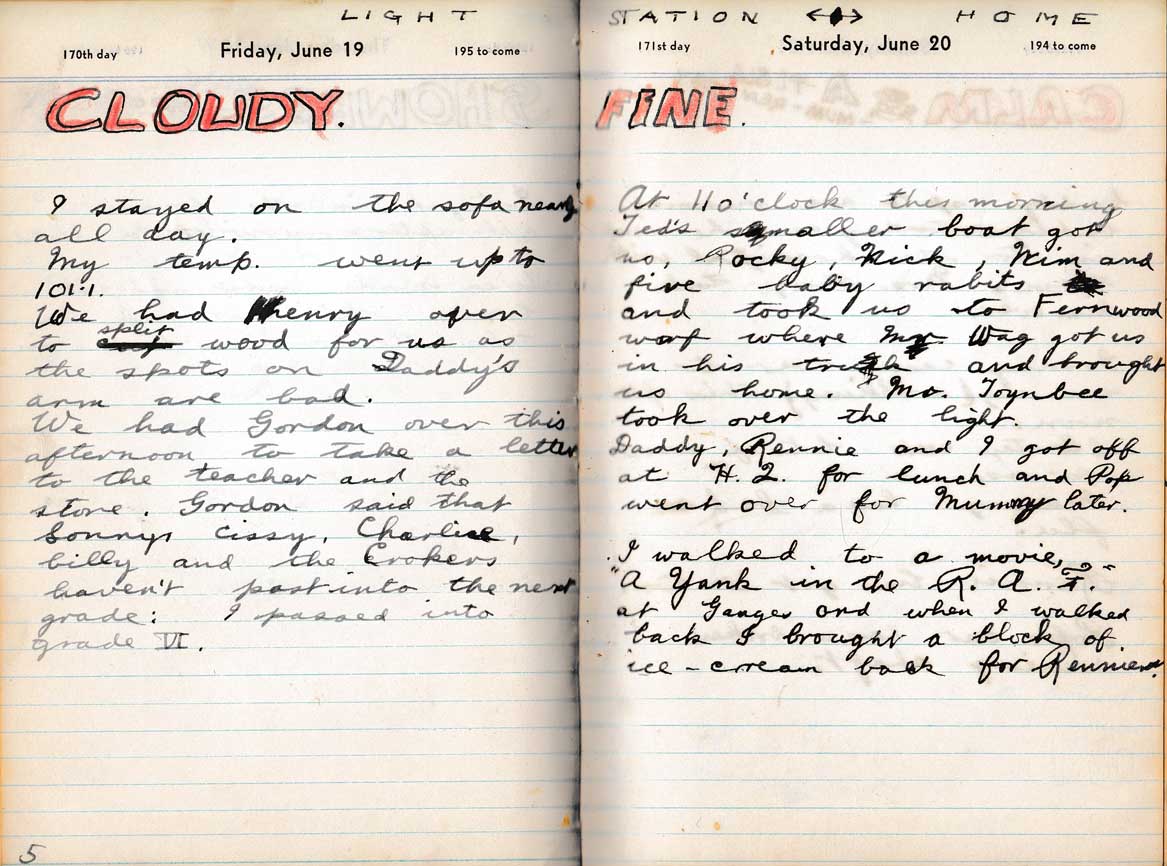 LIGHT STATION HOME
170th day Friday, June 19 195 to come
CLOUDY.
I stayed on the sofa nearly
all day.
My temp. went up to
101.1.
We had Henry over
to split wood for us as
the spots on Daddy's
arm are bad.
We had Gordon over this
afternoon to take a letter
to the teacher and the
store. Gordon said that
Sonny, Cissy, Charlie,
billy and the Crokers
haven't past into the next
grade: I passed into
grade VI.
5
171st day Saturday, June 20 194 to come
FINE.
At 11 o'clock this morning
Ted's smaller boat got
us, Rocky, Nick, Kim and
five baby rabits
and took us to Fernwood
warf where Mr. Wag got us
in his and brought
us home. Mr. Toynbee
took over the light.
Daddy, Rennie and I got off
at H.2. for lunch and Pop
went over for Mummy later.
I walked to a movie,
"A Yank in the R. A. F."
at Ganges and when I walked
back I brought a block of
ice-crream back for Rennie